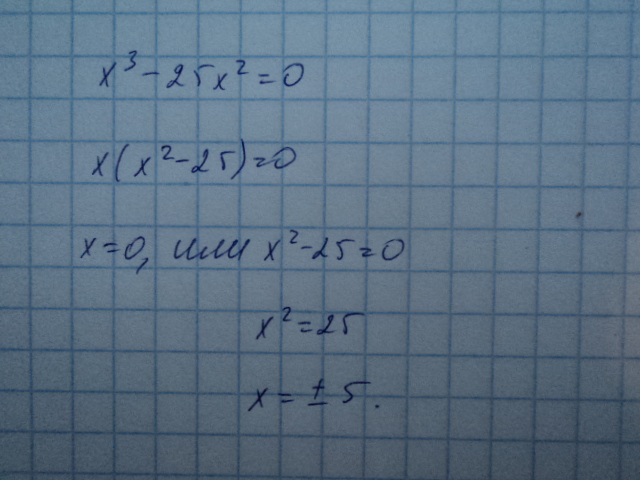 x³ - 25x² = 0
x(x² - 25) = 0
x = 0, или x² - 25 = 0
x² = 25
x = ± 5.